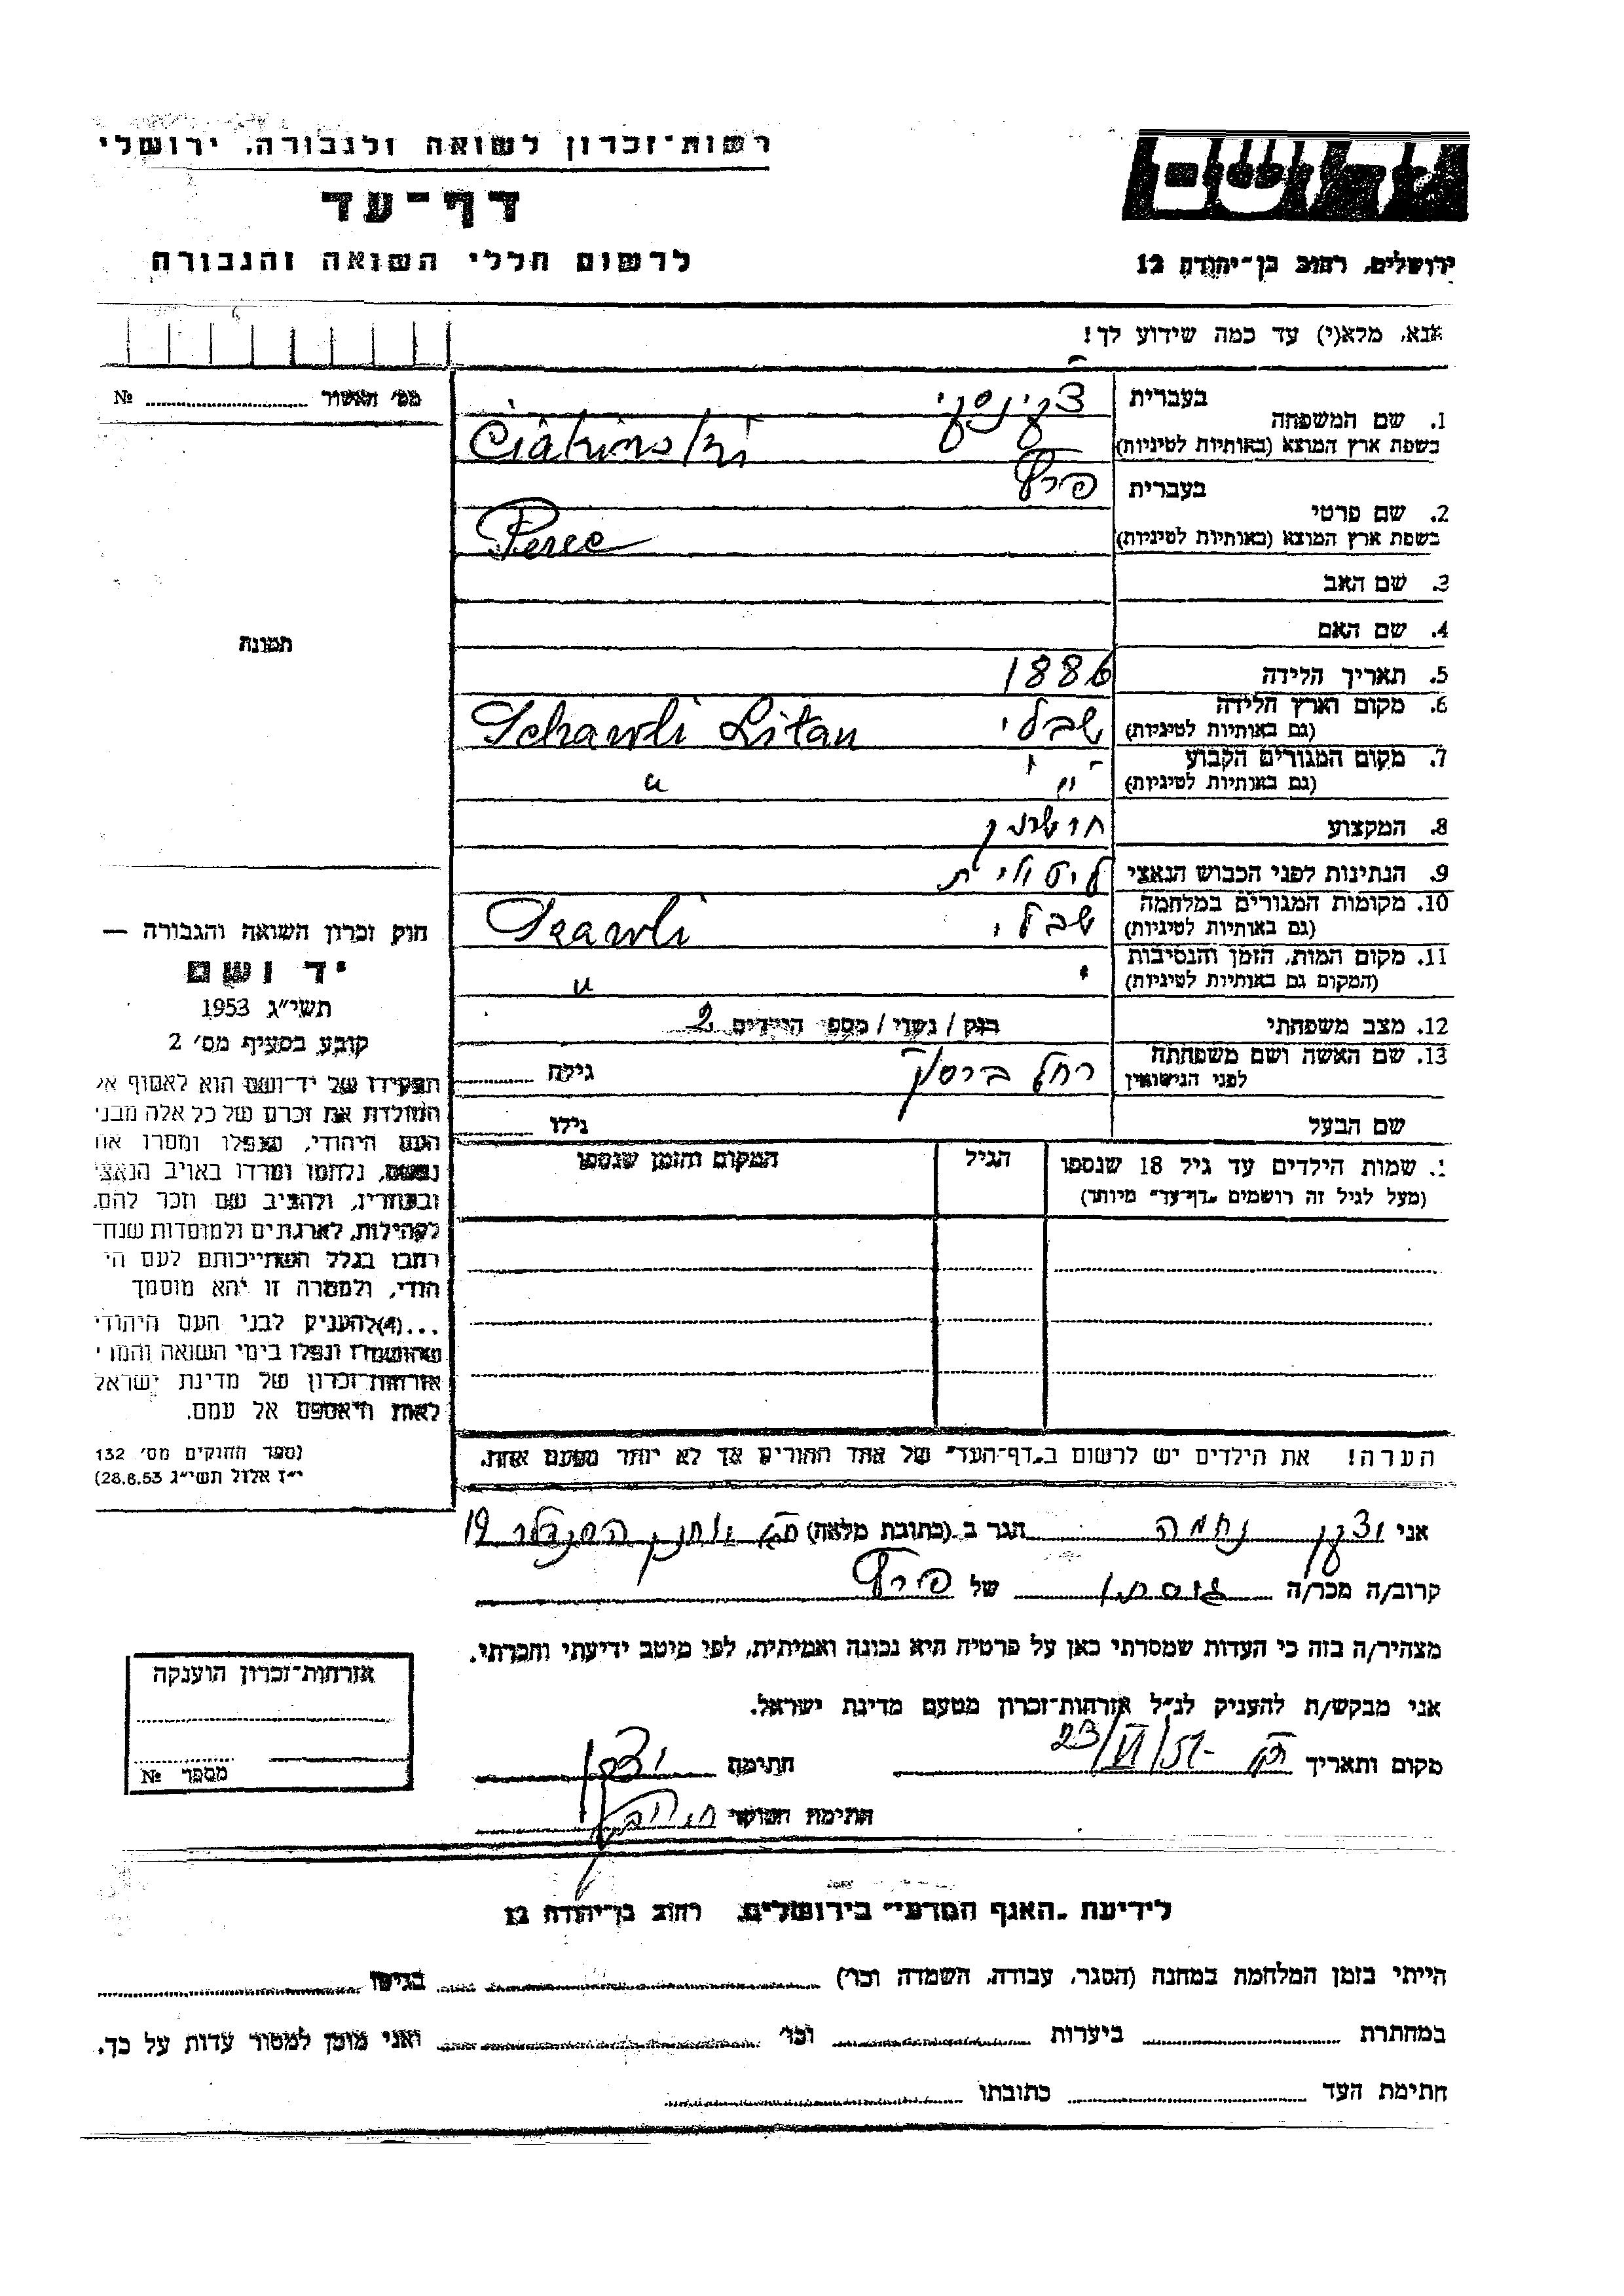 רשות־זכרון לשואה ולגבורה, ירושלי
דף־עד
לרשום חללי השואה והגבורה
ירושלים, רחוב בן־יהודה 12
אנא, מלא(י) עד כמה שידוע לך!
מס׳ תאשור № 
1. שם המשפחה
בעברית
בשפת ארץ המוצא (באותיות לטיניות)
Ciakinski
2. שם פרטי
בעברית פרץ
בשפת ארץ המוצא (באותיות לטיניות)
Perec
3. שם האב
4. שם האם
5. תאריך הלידה 1886
6. מקום וארץ הלידה
(גם באותיות לטיניות) שבלי Schawli Litau
7. מקום המגורים הקבוע
(גם באותיות לטיניות) " "
8. המקצוע
9. הנתינות לפני הכבוש הנאצי ליטאית
10. מקומות המגורים במלחמה
(גם באותיות לטיניות) שבלי Scawli
11. מקום המות, הזמן והנסיבות
(המקום גם באותיות לטיניות) "
12. מצב משפחתי רווק / נשוי / מספר הילדים 2
13. שם האשה ושם משפחתה
לפני הנישואין רחל גילה
שם הבעל גילו
שמות הילדים עד גיל 18 שנספו
(מעל לגיל זה רושמים "דף־עד" מיוחד)
הגיל
המקום והזמן שנספו
הערה! את הילדים יש לרשום ב"דף־העד" של אחד ההורים אך לא יותר מפעם אחת.
תמונה
חוק זכרון השואה והגבורה —
יד ושם
תשי״ג 1953
קובע בסעיף מס׳ 2
תפקידו של יד־ושם הוא לאסוף אל
המולדת את זכרם של כל אלה מבני
העם היהודי, שנפלו ומסרו את
נפשם, נלחמו ומרדו באויב הנאצי
ובעוזריו, ולהציב שם וזכר להם,
לקהילות, לארגונים ולמוסדות שנח־
רבו בגלל השתייכותם לעם הי
הודי, ולמטרה זו יהא מוסמך
...(4)להעניק לבני העם היהודי
שהושמדו ונפלו בימי השואה והמרי
אזרחות־זכרון של מדינת ישראל
לאות היאספם אל עמם.
(ספר החוקים מס׳ 132
י״ז אלול תשי״ג 28.8.53)
אני נחמה הגר ב (כתובת מלאה) יוחנן הסנדלר 19
קרוב/ה מכר/ה של פרץ
מצהיר/ה בזה כי העדות שמסרתי כאן על פרטיה היא נכונה ואמיתית, לפי מיטב ידיעתי והכרתי.
אני מבקש/ת להעניק לנ״ל אזרחות־זכרון מטעם מדינת ישראל.
מקום ותאריך 23/VI/57 חתימה
חתימת הפוקד
אזרחות־זכרון הוענקה
מספר №
לידיעת "האגף המדעי" בירושלים, רחוב בן־יהודה 12
הייתי בזמן המלחמה במחנה (הסגר, עבודה, השמדה וכו׳) בגיטו
במחתרת ביערות וכו׳ ואני מוכן למסור עדות על כך.
חתימת העד כתובתו